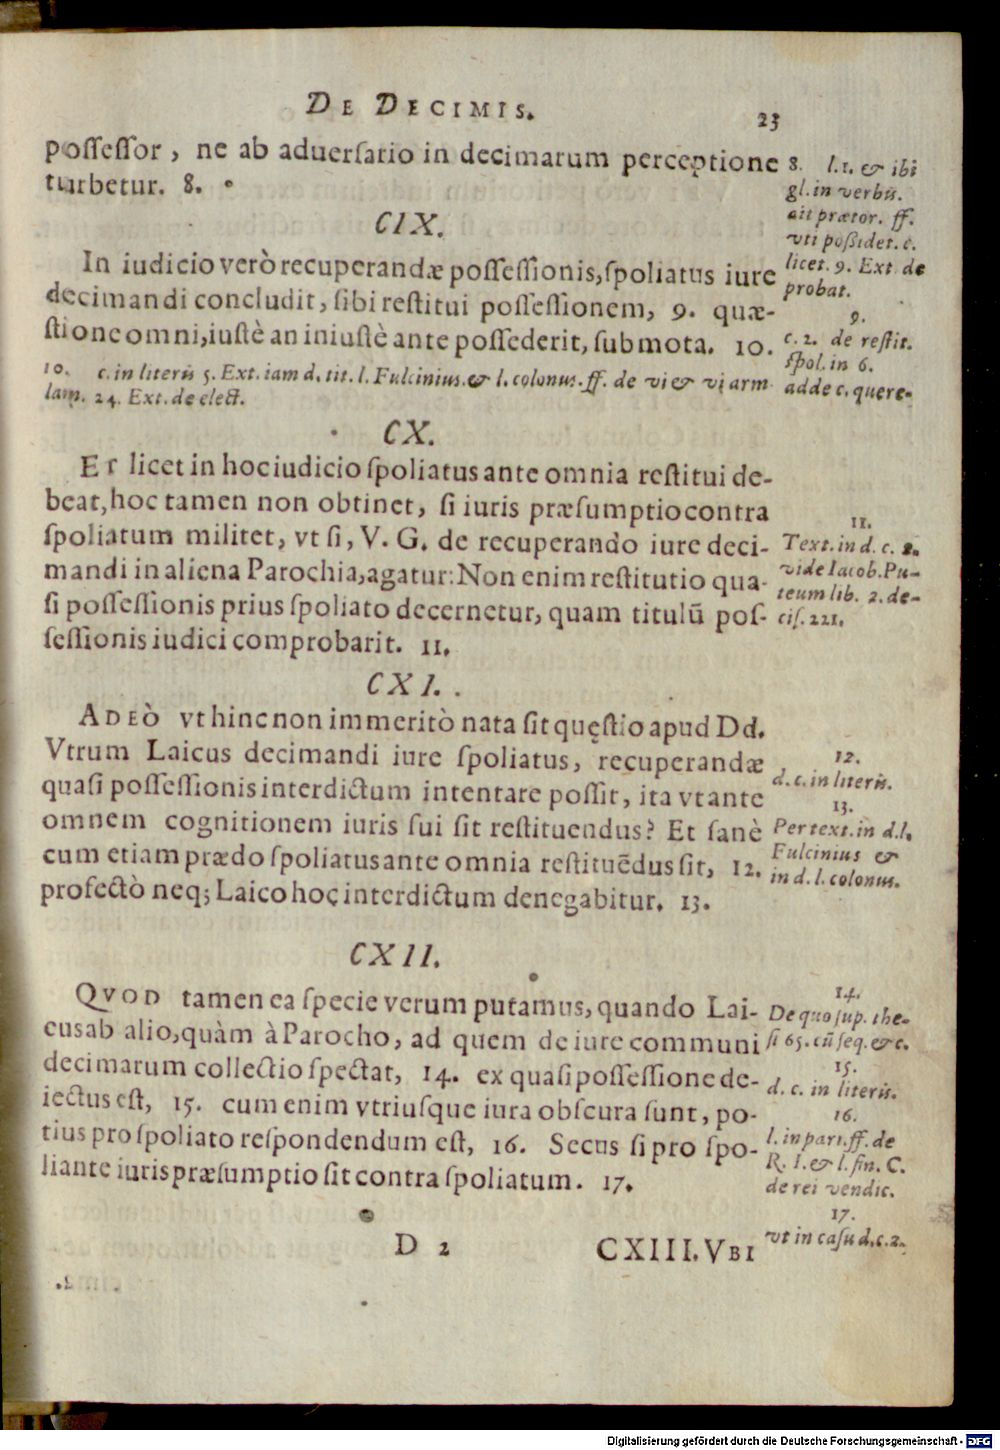 DE DECIMIS. 23
possessor, ne ab aduersario in decimarum perceptione
turbetur. 8.
8. l. 1. & ibi
gl. in verbis.
ait prætor. ff.
vti possidet. c.
licet. 9. Ext. de
probat.
CIX.
In iudicio verò recuperandæ possessionis, spoliatus iure
decimandi concludit, sibi restitui possessionem, 9. quæ-
stione omni, iustè an iniustè ante possederit, submota. 10.
9.
c. 2. de restit.
spol. in 6.
adde c. quere-
10. c. in literis 5. Ext. iam d. tit. l. Fulcinius. & l. colonus. ff. de vi & vi arm
lam. 24. Ext. de elect.
CX.
ET licet in hoc iudicio spoliatus ante omnia restitui de-
beat, hoc tamen non obtinet, si iuris præsumptio contra
spoliatum militet, vt si, V. G. de recuperando iure deci-
mandi in aliena Parochia, agatur: Non enim restitutio qua-
si possessionis prius spoliato decernetur, quam titulũ pos-
sessionis iudici comprobarit. 11.
11.
Text. in d. c. 2.
vide Iacob. Pu-
teum lib. 2. de-
cis. 221.
CXI.
ADEÒ vt hinc non immeritò nata sit quęstio apud Dd.
Vtrum Laicus decimandi iure spoliatus, recuperandæ
quasi possessionis interdictum intentare possit, ita vt ante
omnem cognitionem iuris sui sit restituendus? Et sanè
cum etiam prædo spoliatus ante omnia restituẽdus sit, 12.
profectò neq; Laico hoc interdictum denegabitur. 13.
12.
d. c. in literis.
13.
Per text. in d. l.
Fulcinius &
in d. l. colonus.
CXII.
QVOD tamen ea specie verum putamus, quando Lai-
cus ab alio, quàm à Parocho, ad quem de iure communi
decimarum collectio spectat, 14. ex quasi possessione de-
iectus est, 15. cum enim vtriusque iura obscura sunt, po-
tius pro spoliato respondendum est, 16. Secus si pro spo-
liante iuris præsumptio sit contra spoliatum. 17.
14.
De quo sup. the-
si 65. cũ seq. & c.
15.
d. c. in literis.
16.
l. in pari. ff. de
R. I. & l. fin. C.
de rei vendic.
17.
vt in casu d. c. 2.
D 2 CXIII. VBI
Digitalisierung gefördert durch die Deutsche Forschungsgemeinschaft - DFG